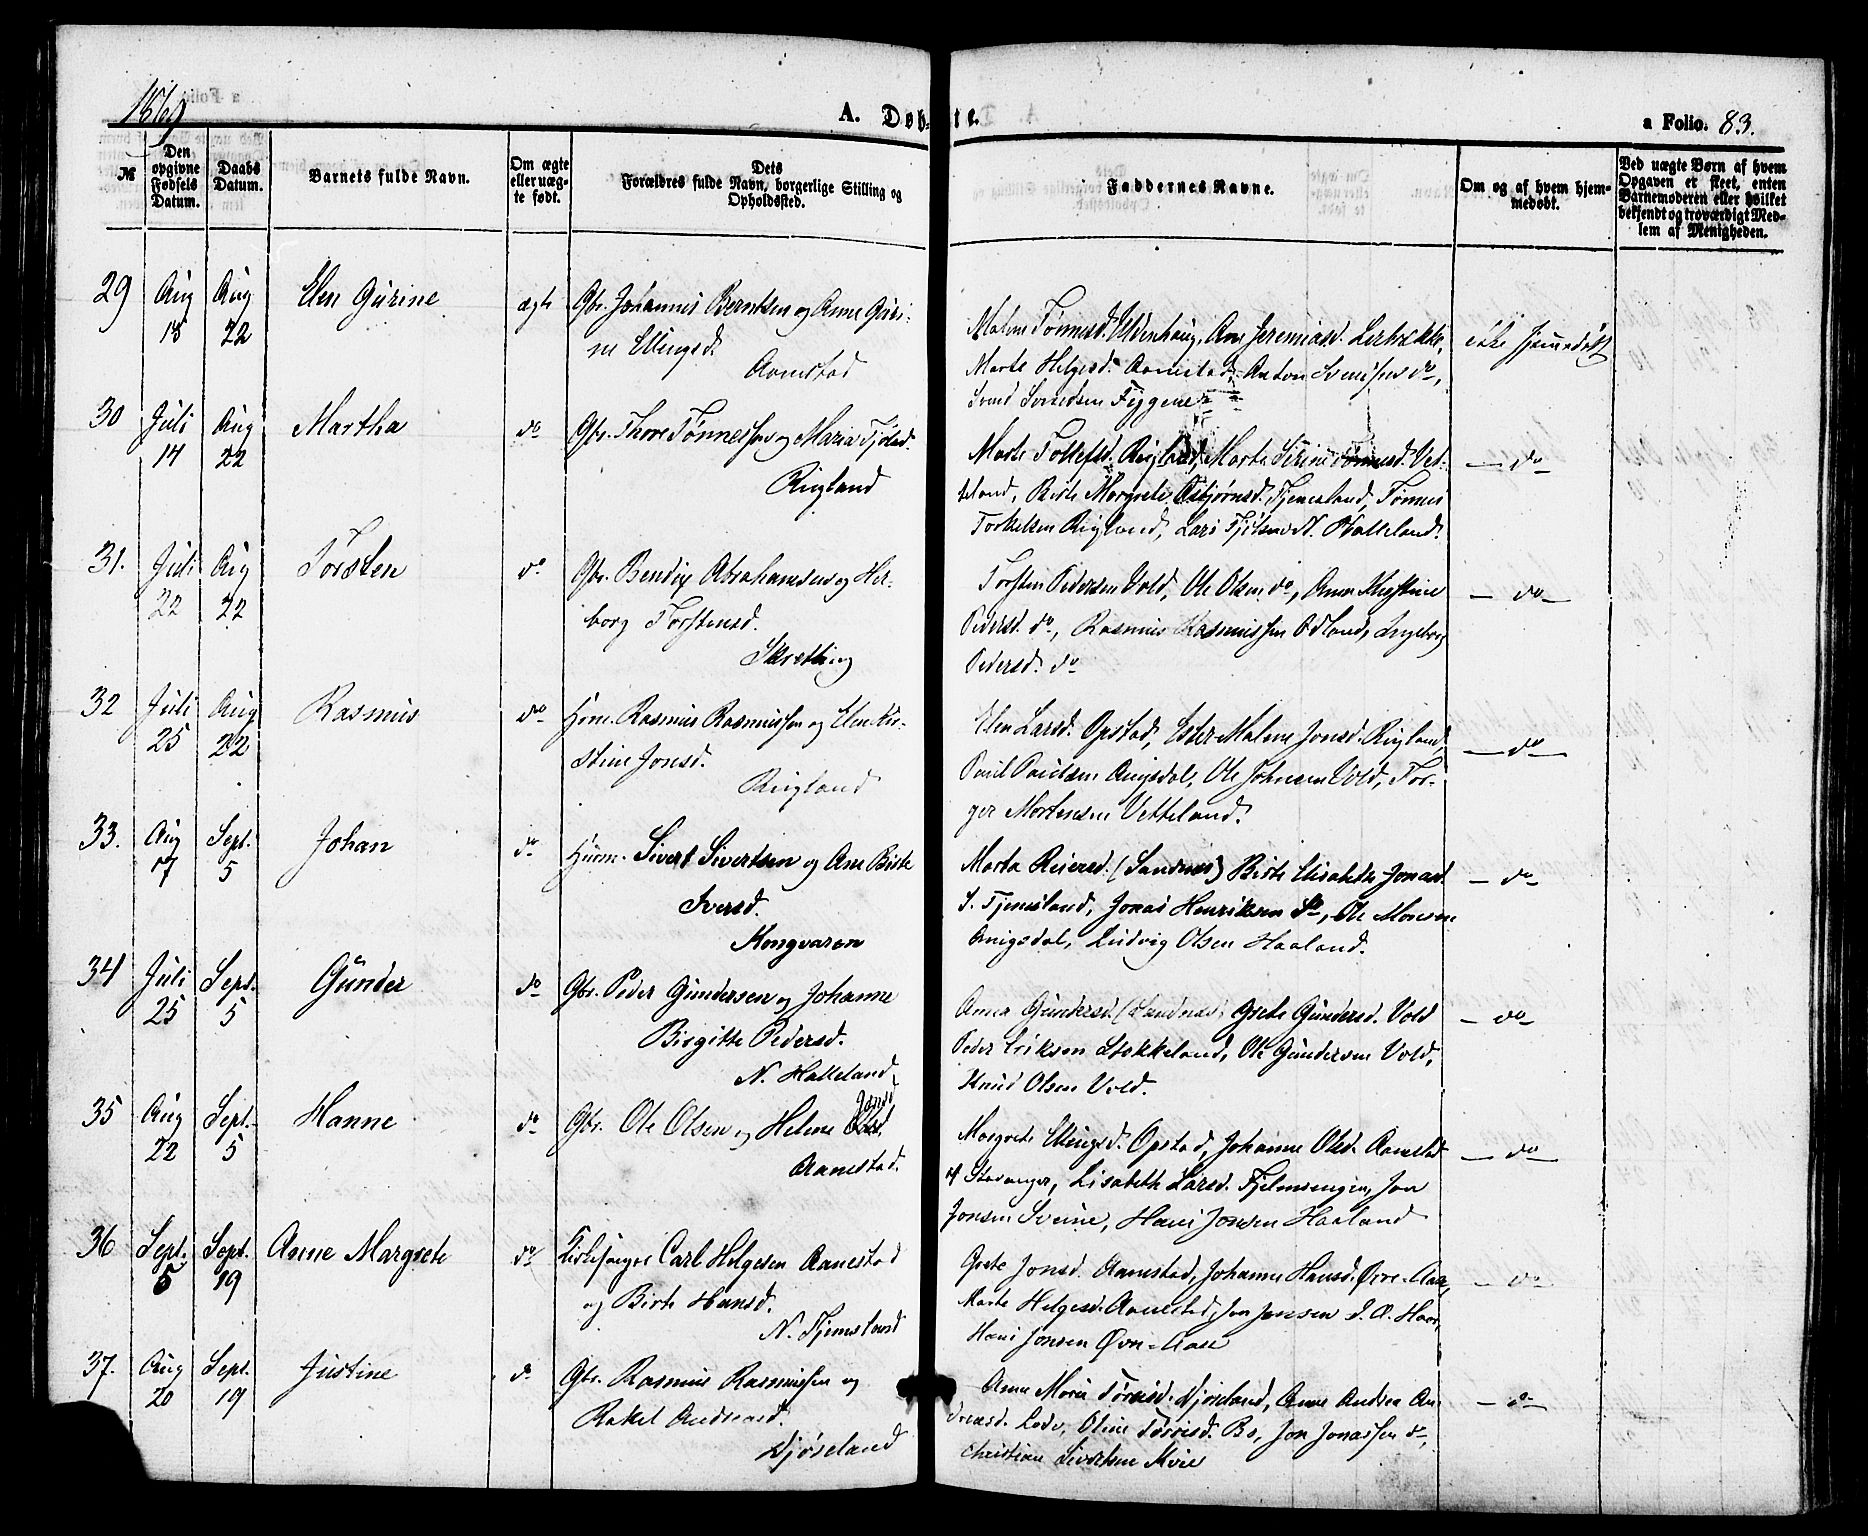 1869
A. Døbte.
a Folio. 83.
№
Den opgivne Fødsels Datum.
Daabs Datum.
Barnets fulde Navn.
Om ægte eller uægte født.
Dets Forældres fulde Navn, borgerlige Stilling og Opholdssted.
Faddernes Navne.
Om og af hvem hjemmedøbt.
Ved uægte Børn af hvem Opgaven er skeet, enten Barnemoderen eller hvilket bekjendt og troværdigt Medlem af Menigheden.
29 Aug 18 Aug 22 Elen Gurine ægte Gbr. Johannes Berntsen og Anne Guri-
ne Ellingsd.
Aanestad
Malene Tønnesd. Uldenhaug, Ane Jeremiasd. Lerbrække, ikke hjemmedøbt
Marte Helgesd. Aanestad, Anton Svensen do,
Svend Svendsen Tyggene
30 Juli 14 Aug 22 Martha do Gbr. Thore Tønnessen og Maria Fjelsd.
Ringland
Marte Tollefsd. Ringland, Marte Serine Tønnesd. Vet-
teland, Birte Margrete Asbjørnsd. Fjemesland, Tønnes
Torkelsen Ringland, Lars Fjelsen N. Halleland.
— do
31. Juli 22 Aug 22 Torsten do Gbr. Bendix Abrahamsen og Her-
borg Torstensd.
Skretting
Torsten Pedersen Vold, Ole Olsen do, Anne Kirstine
Pedersd. do, Rasmus Rasmussen Odland, Ingeborg
Pedersd. do
— do —
32 Juli 25 Aug 22 Rasmus do Huusm. Rasmus Rasmussen og Elen Kir-
stine Jonsd.
Ringland
Elen Larsd. Opstad, Ester Malene Jonsd. Ringland,
Paul Paulsen Anigsdal, Ole Johnsen Vold, Tor-
ger Mortensen Vetteland.
— do —
33. Aug 17 Sept. 5 Johan do Huusm. Sivert Sivertsen og Ane Birte
Iversd.
Kongvaren
Marta Reiersd. (Sandnes) Birte Elisabeth Jonasd.
S. Fjemesland, Jonas Henriksen do, Ole Monsen
Anigsdal, Ludvig Olsen Haaland.
— do —
34 Juli 25 Sept. 5 Gunder do Gbr. Peder Gundersen og Johanne
Birgitte Pedersd.
N. Halleland
Anna Gundersd. (Sandnes) Grete Gundersd. Vold
Peder Eriksen Stokkeland, Ole Gundersen Vold,
Knud Olsen Vold.
— do —
35 Aug 22 Sept. 5 Hanne do Gbr. Ole Olsen og Helene Jonsd.
Aanestad.
Margrete Ellingsd. Opstad, Johanne Olsd. Aanestad
af Stavanger, Lisabeth Larsd. Fjelmsengen, Jon
Jonsen Sveine, Hans Jonsen Haaland
— do —
36 Sept. 5 Sept. 19 Anne Margrete do Kirkesanger Carl Helgesen Aanestad
og Birte Hansd.
N. Fjemesland
Grete Jonsd. Aanestad, Johanne Hansd. Øvre-Aase,
Marte Helgesd. Aanestad, Jon Jensen S. A. Haar,
Hans Jonsen Øvre-Aase
— do
37. Aug 20 Sept. 19 Justine do Gbr. Rasmus Rasmussen og
Rakel Andreasd.
Njøseland
Anne Marie Tørrisd. Njøseland, Anne Andrea An-
dreasd. Lode, Oline Tørrisd. Bo, Jon Jonassen do,
Christian Sivertsen Kvie
— do —